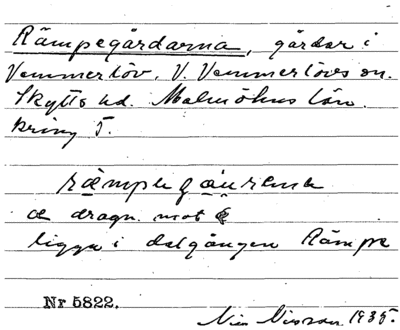 Rämpegårdarna, gårdar i
Vemmerlöv, V. Vemmerlövs sn.
Skytts hd. Malmöhus län.
kring 5.
ræmpegäurena
æ dragn. mot
ligga i dalgången Rämpe
Nr 5822.
Nils Nilsson 1935.